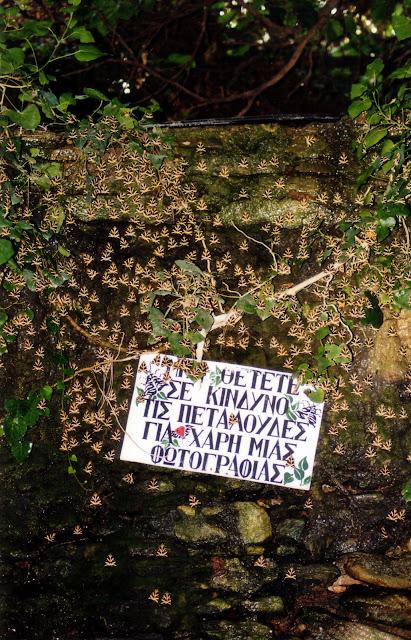 ΘΕΤΕΤΕ
ΣΕ ΚΙΝΔΥΝΟ
ΤΙΣ ΠΕΤΑΛΟΥΔΕΣ
ΓΙΑ ΧΑΡΗ ΜΙΑΣ
ΦΩΤΟΓΡΑΦΙΑΣ